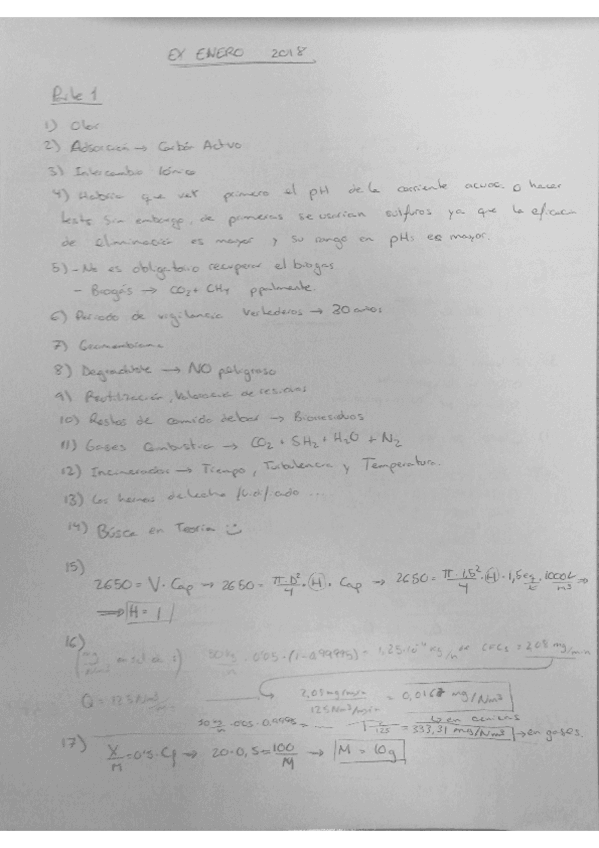 EX ENERO 2018
Parte 1
1) Olor
2) Adsorción → Carbón Activo
3) Intercambio Iónico
4) Habría que ver primero el pH de la corriente acuosa o hacer
tests. Sin embargo, de primeras se usarían sulfuros ya que la eficacia
de eliminación es mayor y su rango en pHs es mayor.
5) - No es obligatorio recuperar el biogas.
- Biogás → CO2 + CH4 ppalmente.
6) Periodo de vigilancia Vertederos → 30 años
7) Geomembrana
8) Degradable → NO peligroso
9) Reutilización, Valorización de residuos
10) Restos de comida de bar → Biorresiduos
11) Gases Combustión → CO2 + SH2 + H2O + N2
12) Incinerador → Tiempo, Turbulencia y Temperatura.
13) Los hornos de lecho fluidificado ...
14) Busca en Teoría
15)
2650 = V · Cap → 2650 = π·D²/4 · H · Cap → 2650 = π·1,5²/4 · H · 1,5 eq/L · 1000L/m³ ⇒
⇒ H = 1
16)
· 0'05 · (1-0.99995) = 1,25·10 = 2,08 mg/min
Q = 125 Nm³/min → 2,08 mg/min / 125 Nm³/min = 0,0167 mg/Nm³
· 0.05 · 0,9995 = 333,31 mg/Nm³ → en gases.
17) X/M = 0'5 · Cf → 20 · 0,5 = 100/M → M = 10g